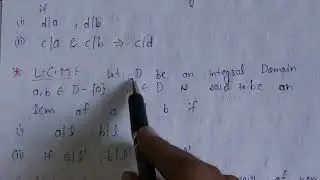 if
(i) d|a , d|b
(ii) c|a & c|b ⇒ c|d
* L.C.M :- Let D be an integral Domain
a, b ∈ D - {0} ∈ D is said to be an
lcm of a b if
i) a|l b|l
(ii) if a|l' , b|l'
of